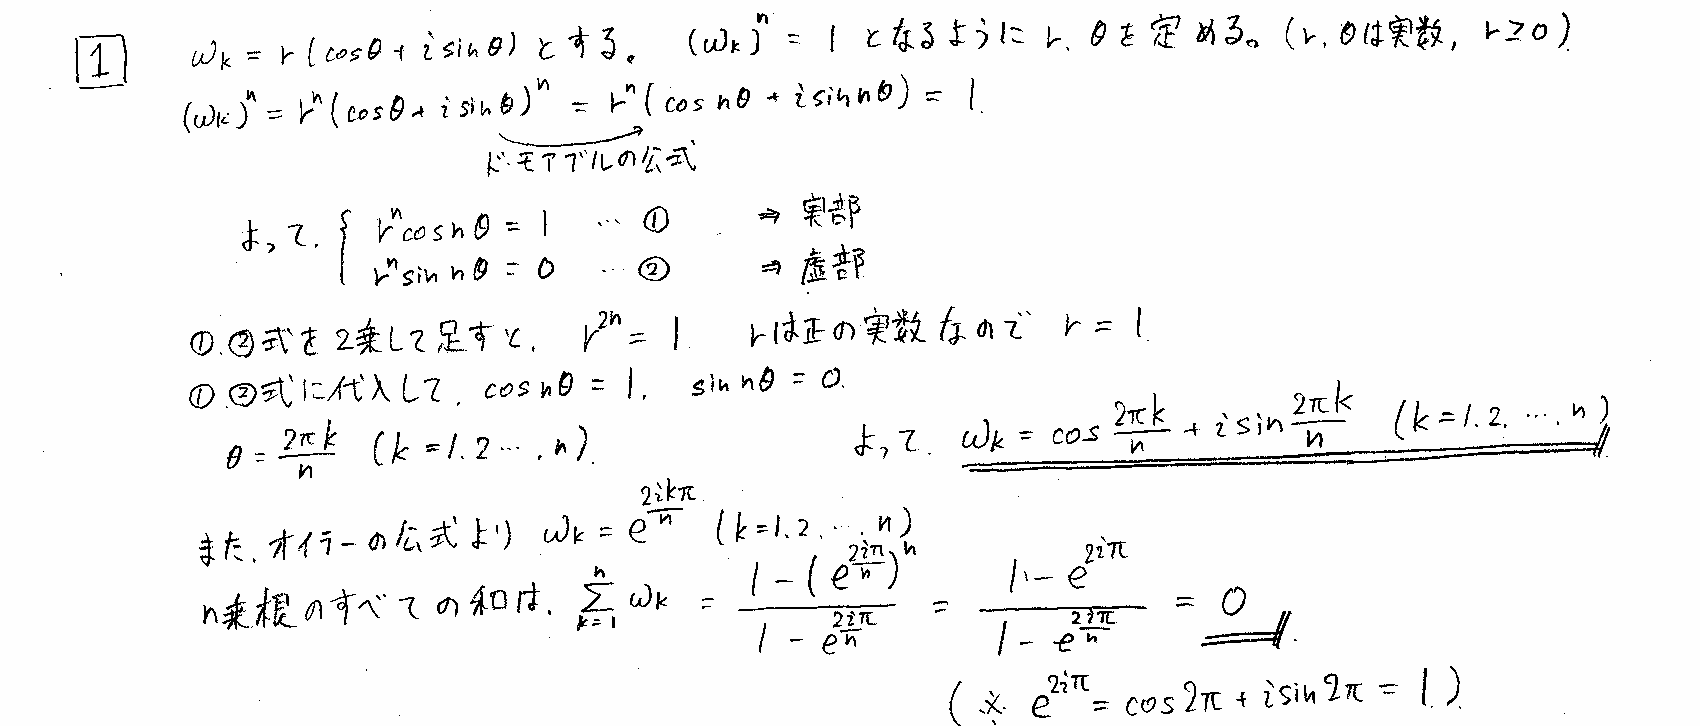 1 ωk = r(cosθ + i sinθ) とする。 (ωk)^n = 1 となるように r, θを定める。(r, θは実数, r≥0)
(ωk)^n = r^n(cosθ + i sinθ)^n = r^n(cos nθ + i sin nθ) = 1
ド・モアブルの公式
よって, { r^n cos nθ = 1 … ① ⇒ 実部
r^n sin nθ = 0 … ② ⇒ 虚部
①,②式を2乗して足すと, r^{2n} = 1 rは正の実数なので r = 1
①,②式に代入して, cos nθ = 1, sin nθ = 0.
θ = 2πk/n (k = 1.2 …, n) よって, ωk = cos 2πk/n + i sin 2πk/n (k = 1.2. …, n)
また, オイラーの公式より ωk = e^{2ikπ/n} (k=1.2. …, n)
n乗根のすべての和は, Σ_{k=1}^{n} ωk = (1 - (e^{2iπ/n})^n)/(1 - e^{2iπ/n}) = (1 - e^{2iπ})/(1 - e^{2iπ/n}) = 0
(※ e^{2iπ} = cos2π + i sin2π = 1)